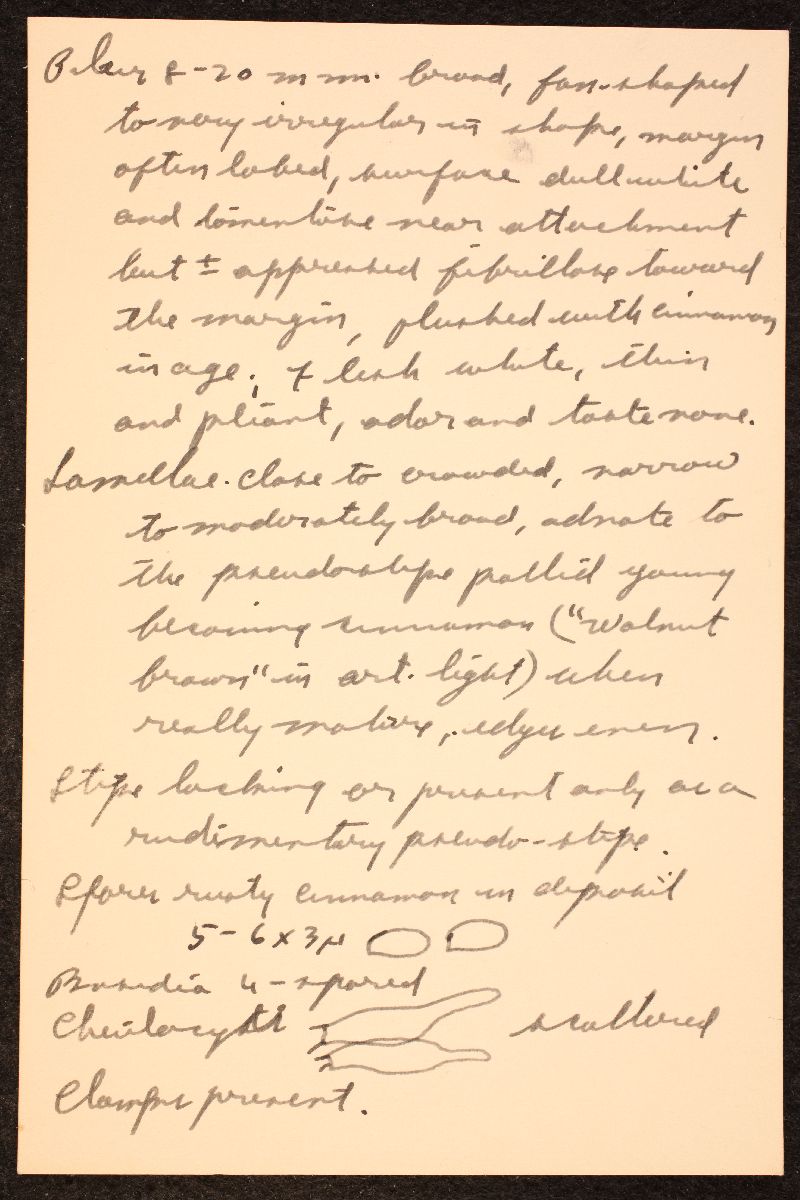 Pileus 8-20 m m. broad, fan-shaped
to very irregular in shape, margin
often lobed, surface dull white
and tomentose near attachment
but ± appressed fibrillose toward
the margin, flushed with cinnamon
in age; flesh white, thin
and pliant, odor and taste none.
Lamellae close to crowded, narrow
to moderately broad, adnate to
the pseudostipe pallid young
becoming cinnamon ("walnut
brown" in art. light) when
really mature, edges even.
Stipe lacking or present only as a
rudimentary pseudo-stipe.
Spores rusty cinnamon in deposit
5-6x3µ
Basidia 4-spored
Cheilocysti scattered
Clamps present.